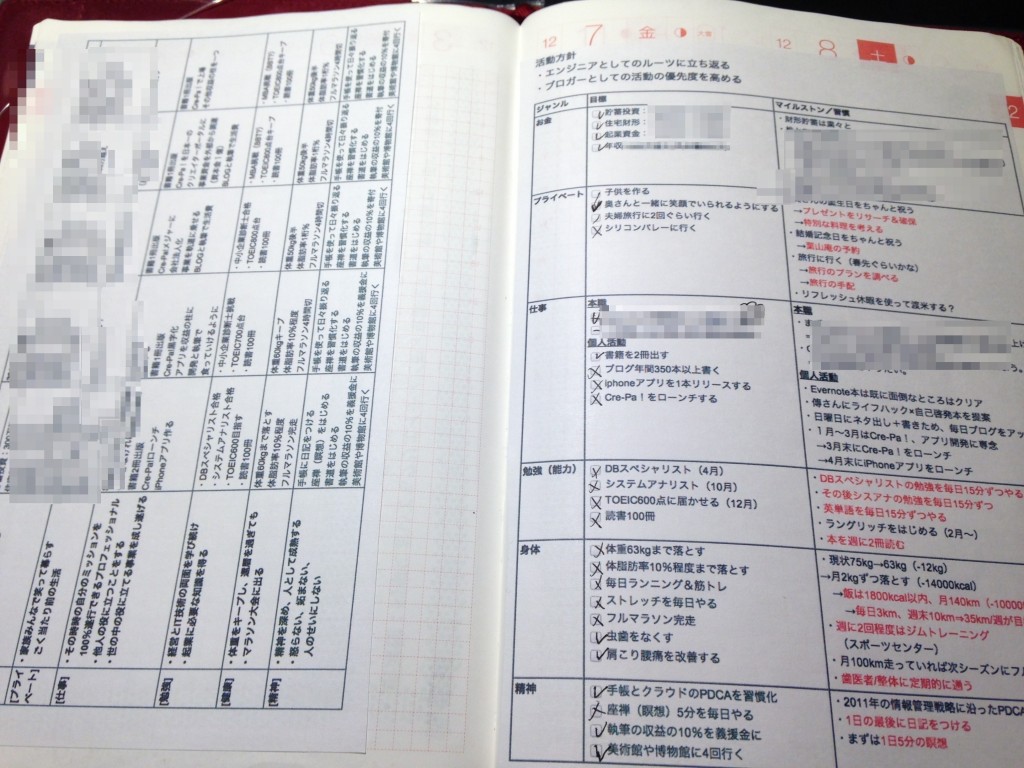 12 7 金 大雪
12 8 土
活動方針
・エンジニアとしてのルーツに立ち返る
・ブロガーとしての活動の優先度を高める
ジャンル 目標 マイルストン／習慣
お金
貯蓄投資：
住宅財形：
起業資金：
年収
・財形貯蓄は楽々と
プライベート
子供を作る
奥さんと一緒に笑顔でいられるようにする
夫婦旅行に2回ぐらい行く
シリコンバレーに行く
の誕生日をちゃんと祝う
→プレゼントをリサーチ＆確保
→特別な料理を考える
・結婚記念日をちゃんと祝う
→葉山庵の予約
・旅行に行く（春先ぐらいかな）
→旅行のプランを調べる
→旅行の手配
・リフレッシュ休暇を使って渡米する？
仕事
本職
個人活動
書籍を2冊出す
ブログ年間350本以上書く
iphoneアプリを1本リリースする
Cre-Pa！をローンチする
本職
個人活動
・Evernote本は既に面倒なところはクリア
・傳さんにライフハック×自己啓発本を提案
・日曜日にネタ出し＋書きため、毎日ブログをアッ
・１月〜3月はCre-Pa！、アプリ開発に専念
→3月末にCre-Pa！をローンチ
→4月末にiPhoneアプリをローンチ
勉強（能力）
DBスペシャリスト（4月）
システムアナリスト（10月）
TOEIC600点に届かせる（12月）
読書100冊
・DBスペシャリストの勉強を毎日15分ずつやる
・その後シスアナの勉強を毎日15分ずつ
・英単語を毎日15分ずつやる
・ラングリッチをはじめる（2月〜）
・本を週に2冊読む
身体
体重63kgまで落とす
体脂肪率10％程度まで落とす
毎日ランニング＆筋トレ
ストレッチを毎日やる
フルマラソン完走
虫歯をなくす
肩こり腰痛を改善する
・現状75kg→63kg（-12kg）
→月2kgずつ落とす（-14000kcal）
→飯は1800kcal以内、月140km（-10000
→毎日3km、週末10km⇒35km/週が目
・週に2回程度はジムトレーニング
（スポーツセンター）
・月100km走っていれば次シーズンにフ
・歯医者/整体に定期的に通う
精神
手帳とクラウドのPDCAを習慣化
座禅（瞑想）5分を毎日やる
執筆の収益の10％を義援金に
美術館や博物館に4回行く
・2011年の情報管理戦略に沿ったPDCA
・1日の最後に日記をつける
・まずは1日5分の瞑想
[プライベート]
・家族みんなで笑って暮らす
ごく当たり前の生活
[仕事]
・その時時の自分のミッションを
100％遂行できるプロフェッショナル
・他人の役に立つことをする
・世の中の役に立てる事業を成し遂げる
書籍2冊出版
Cre-Pa!ローンチ
iPhoneアプリ作る
書籍1冊出版
Cre-Pa!黒字化
アプリを収益の柱に
開発と執筆で
食っていけるように
書籍1冊出版
Cre-Pa!メジャーに
会社法人化
事業を軌道に乗せる
BLOGと執筆で生活費
書籍1冊出版
Cre-Pa！を日本一の
クリエイターポータルに
BLOGと執筆で生活費
書籍1冊出版
Cre-Pa！で上場
[勉強]
・経営とIT技術の両面を学び続け
起業に必要な知識を得る
・DBスペシャリスト合格
・システムアナリスト合格
・TOEIC600目指す
・読書100冊
・中小企業診断士挑戦
・TOEIC700点台
・読書100冊
・中小企業診断士合格
・TOEIC800点台
・読書100冊
・TOEIC800点台キープ
・読書100冊
・TOEIC800点台キープ
・読書100冊
[健康]
・体重をキープし、還暦を過ぎても
マラソン大会に出る
体重60kgまで落とす
体脂肪率10％程度
フルマラソン完走
体重60kgキープ
体脂肪率10％程度
フルマラソン4時間切
体重50kg後半
体脂肪率1桁％
フルマラソン4時間切
体重50kg後半
体脂肪率1桁％
フルマラソン4時間切
体重50kg後半
体脂肪率1桁％
フルマラソン4時間切
[精神]
・精神を深め、人として成熟する
・怒らない、妬まない、
人のせいにしない
手帳に日記をつける
座禅（瞑想）をはじめる
書道をはじめる
執筆の収益の10％を義援金に
美術館や博物館に4回行く
手帳を使って日々振り返る
座禅を習慣化する
書道をはじめる
執筆の収益の10％を義援金に
美術館や博物館に4回行く
手帳を使って日々振り返る
座禅を習慣化する
書道をはじめる
執筆の収益の10％を寄付
美術館や博物館に4回行く
手帳を使って日々振り返る
座禅を習慣化する
書道をはじめる
執筆の収益の10％を寄付
美術館や博物館に4回行く
手帳を使って日々振り返る
座禅を習慣化する
書道をはじめる
執筆の収益の10％を寄付
美術館や博物館に4回行く